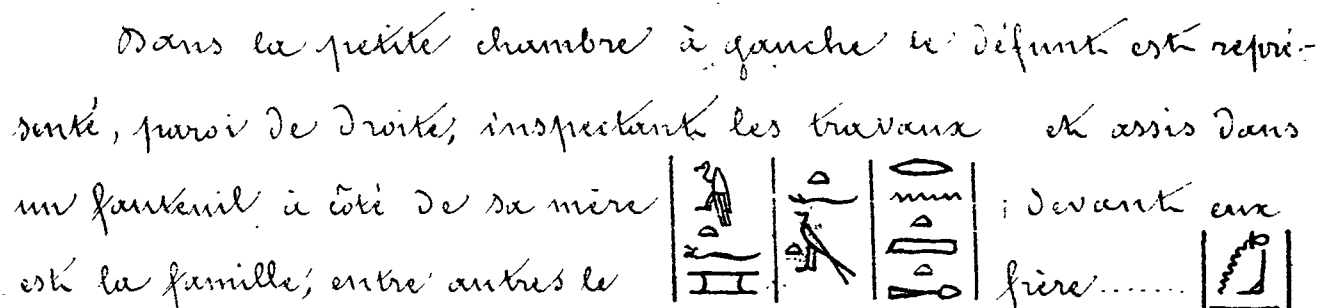 Dans la petite chambre à gauche le défunt est repré-
senté, paroi de droite, inspectant les travaux et assis dans
un fauteuil à côté de sa mère ; devant eux
est la famille, entre autres le frère........